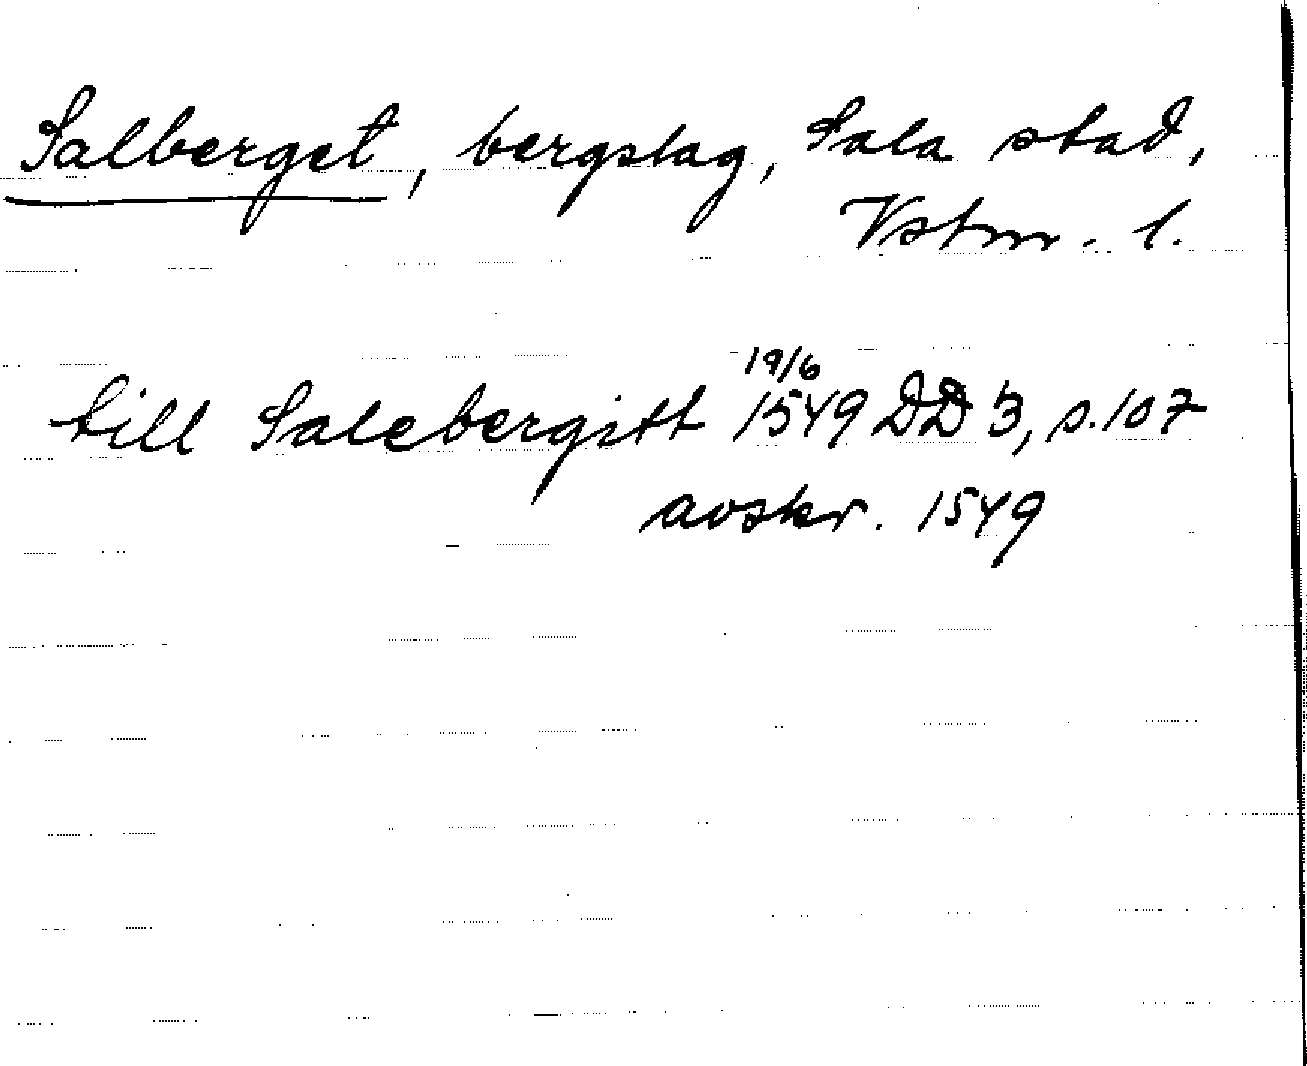 Salberget, bergslag, Sala stad,
Vstm. l.
19/6
till Salebergitt 1549 DD 3, s. 107
avskr. 1549